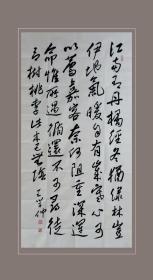 江南有丹橘經冬猶緑林豈
伊地氣暖自有歲寒心可
以薦嘉客奈何阻重深運
命惟所遇循還不可尋徒
言樹桃李此木豈無陰